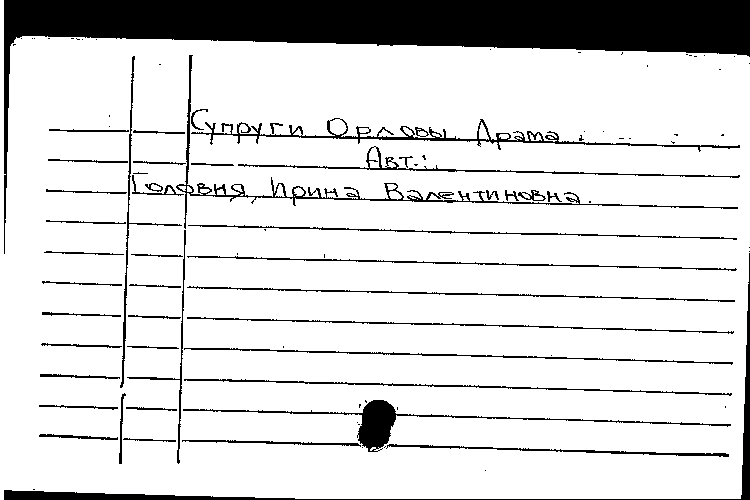 Супруги Орловы. Драма.
Авт.:
Головня, Ирина Валентиновна.